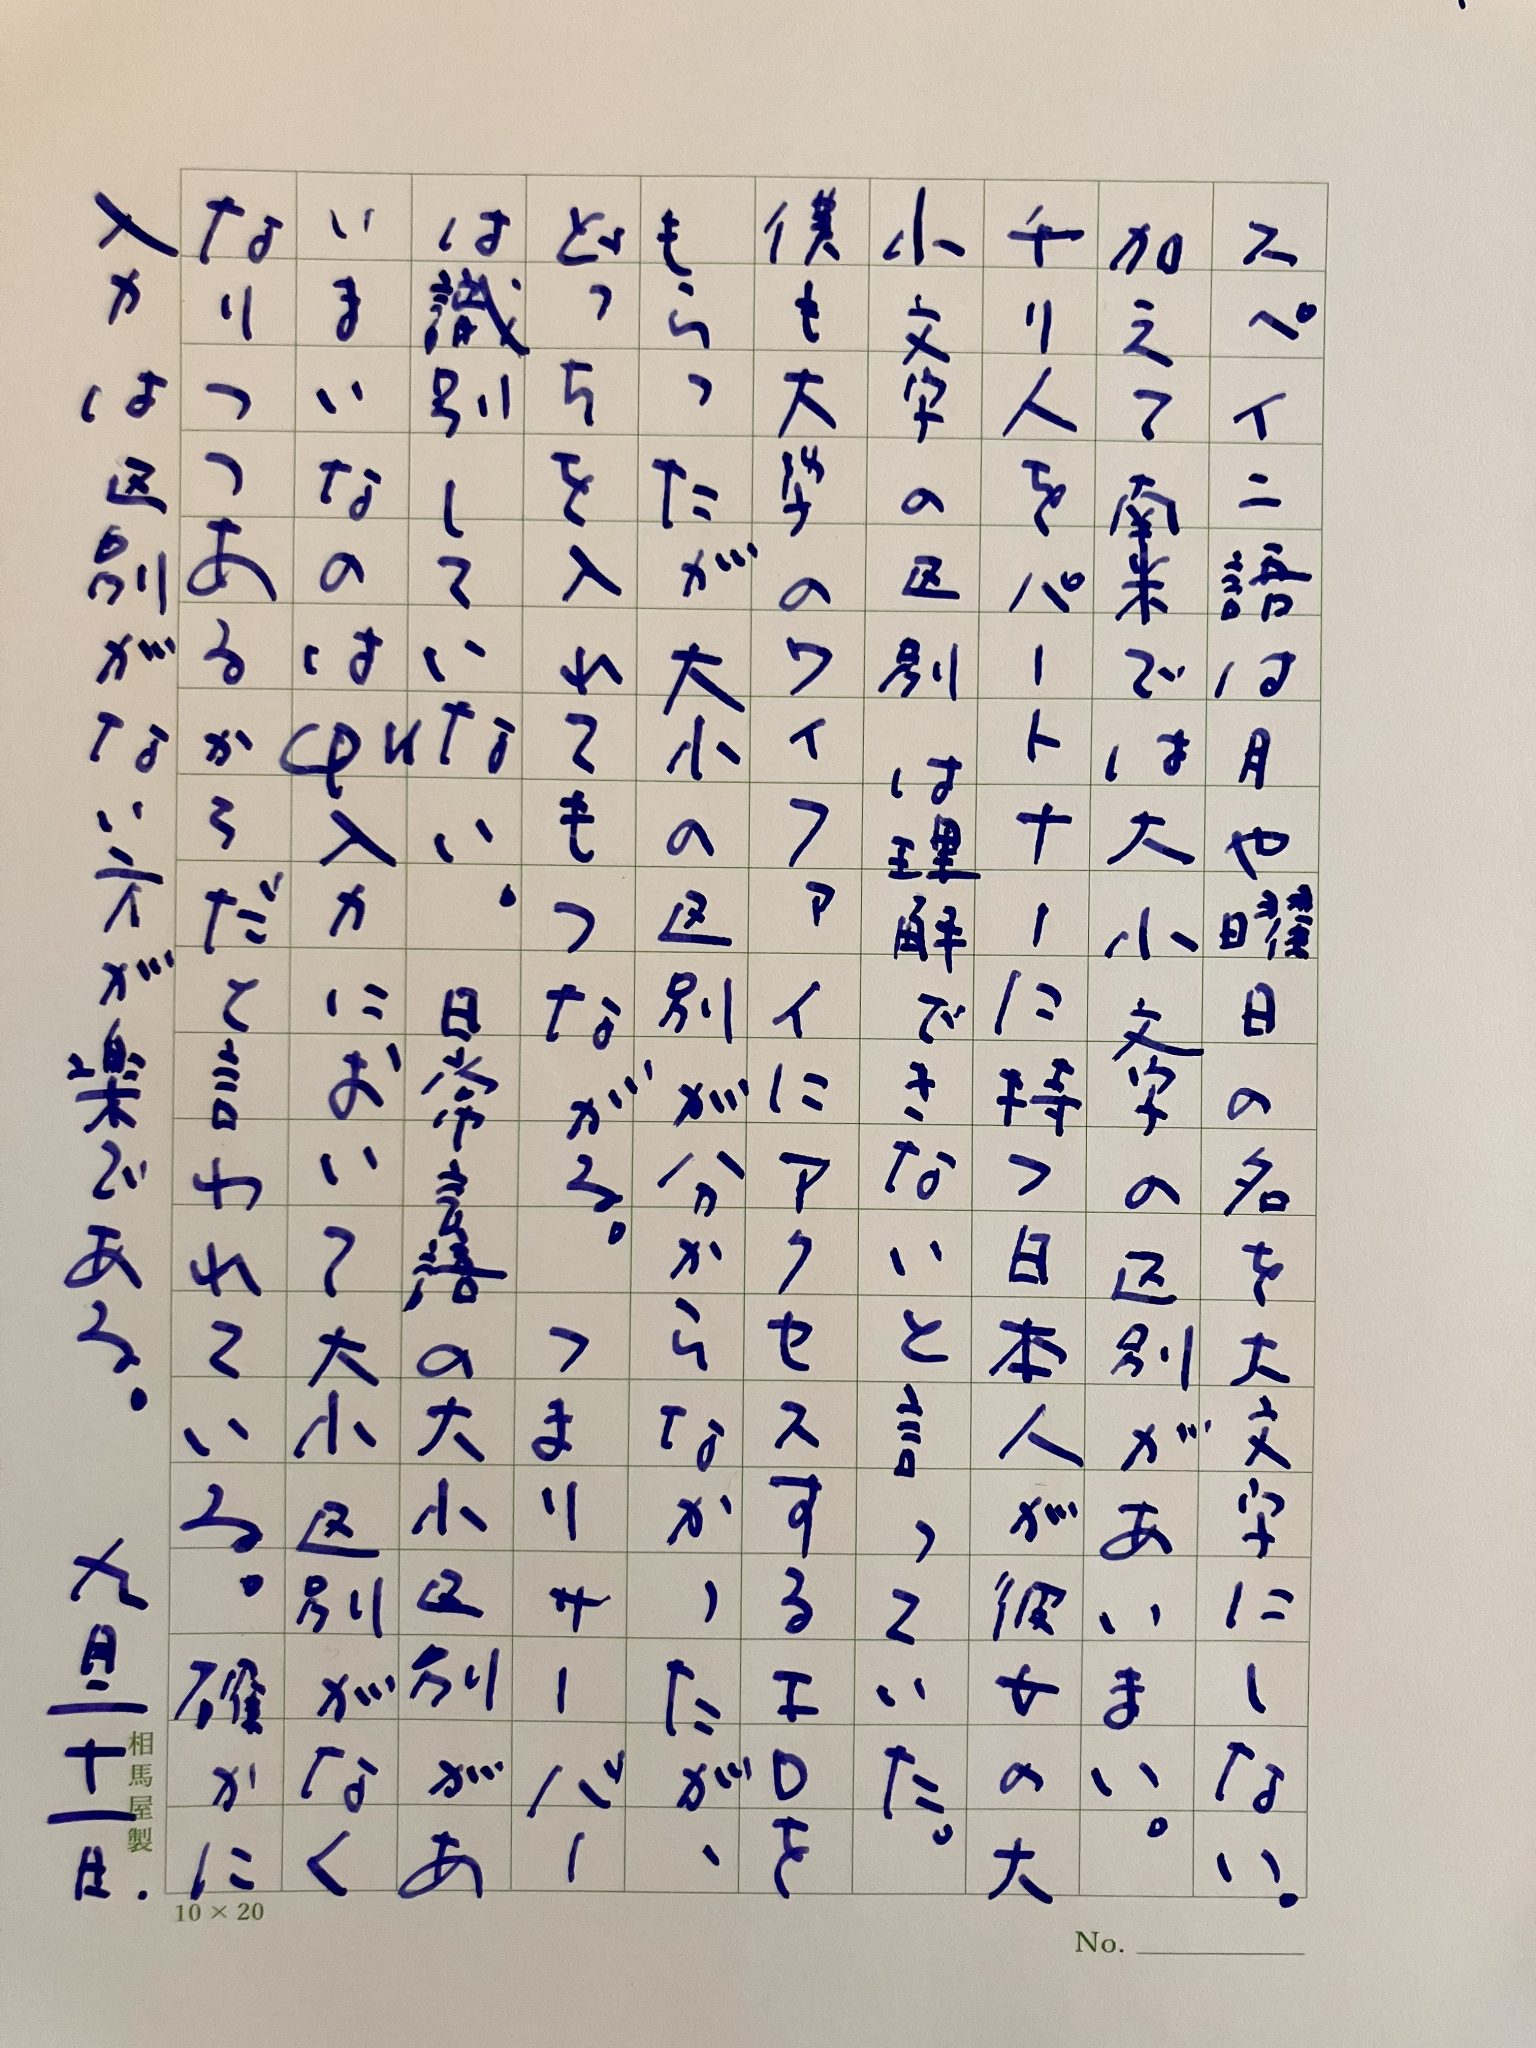 スペイン語は月や曜日の名を大文字にしない。
加えて南米では大小文字の区別があいまい。
チリ人をパートナーに持つ日本人が彼女の大
小文字の区別は理解できないと言っていた。
僕も大学のワイファイにアクセスするIDを
もらったが大小の区別が分からなかったが、
どっちを入れてもつながる。つまりサーバー
は識別していない。日常言語の大小区別があ
いまいなのはCPU入力において大小区別がなく
なりつつあるからだと言われている。確かに
入力は区別がない方が楽である。 九月二十一日.
相馬屋製
10 × 20
No.